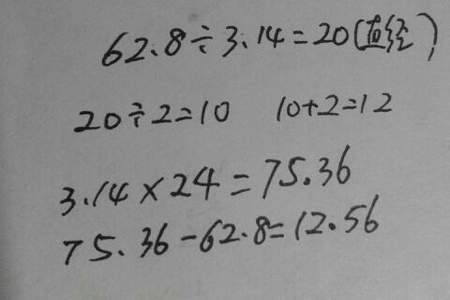 62.8÷3.14=20(直径)
20÷2=10 10+2=12
3.14×24=75.36
75.36-62.8=12.56